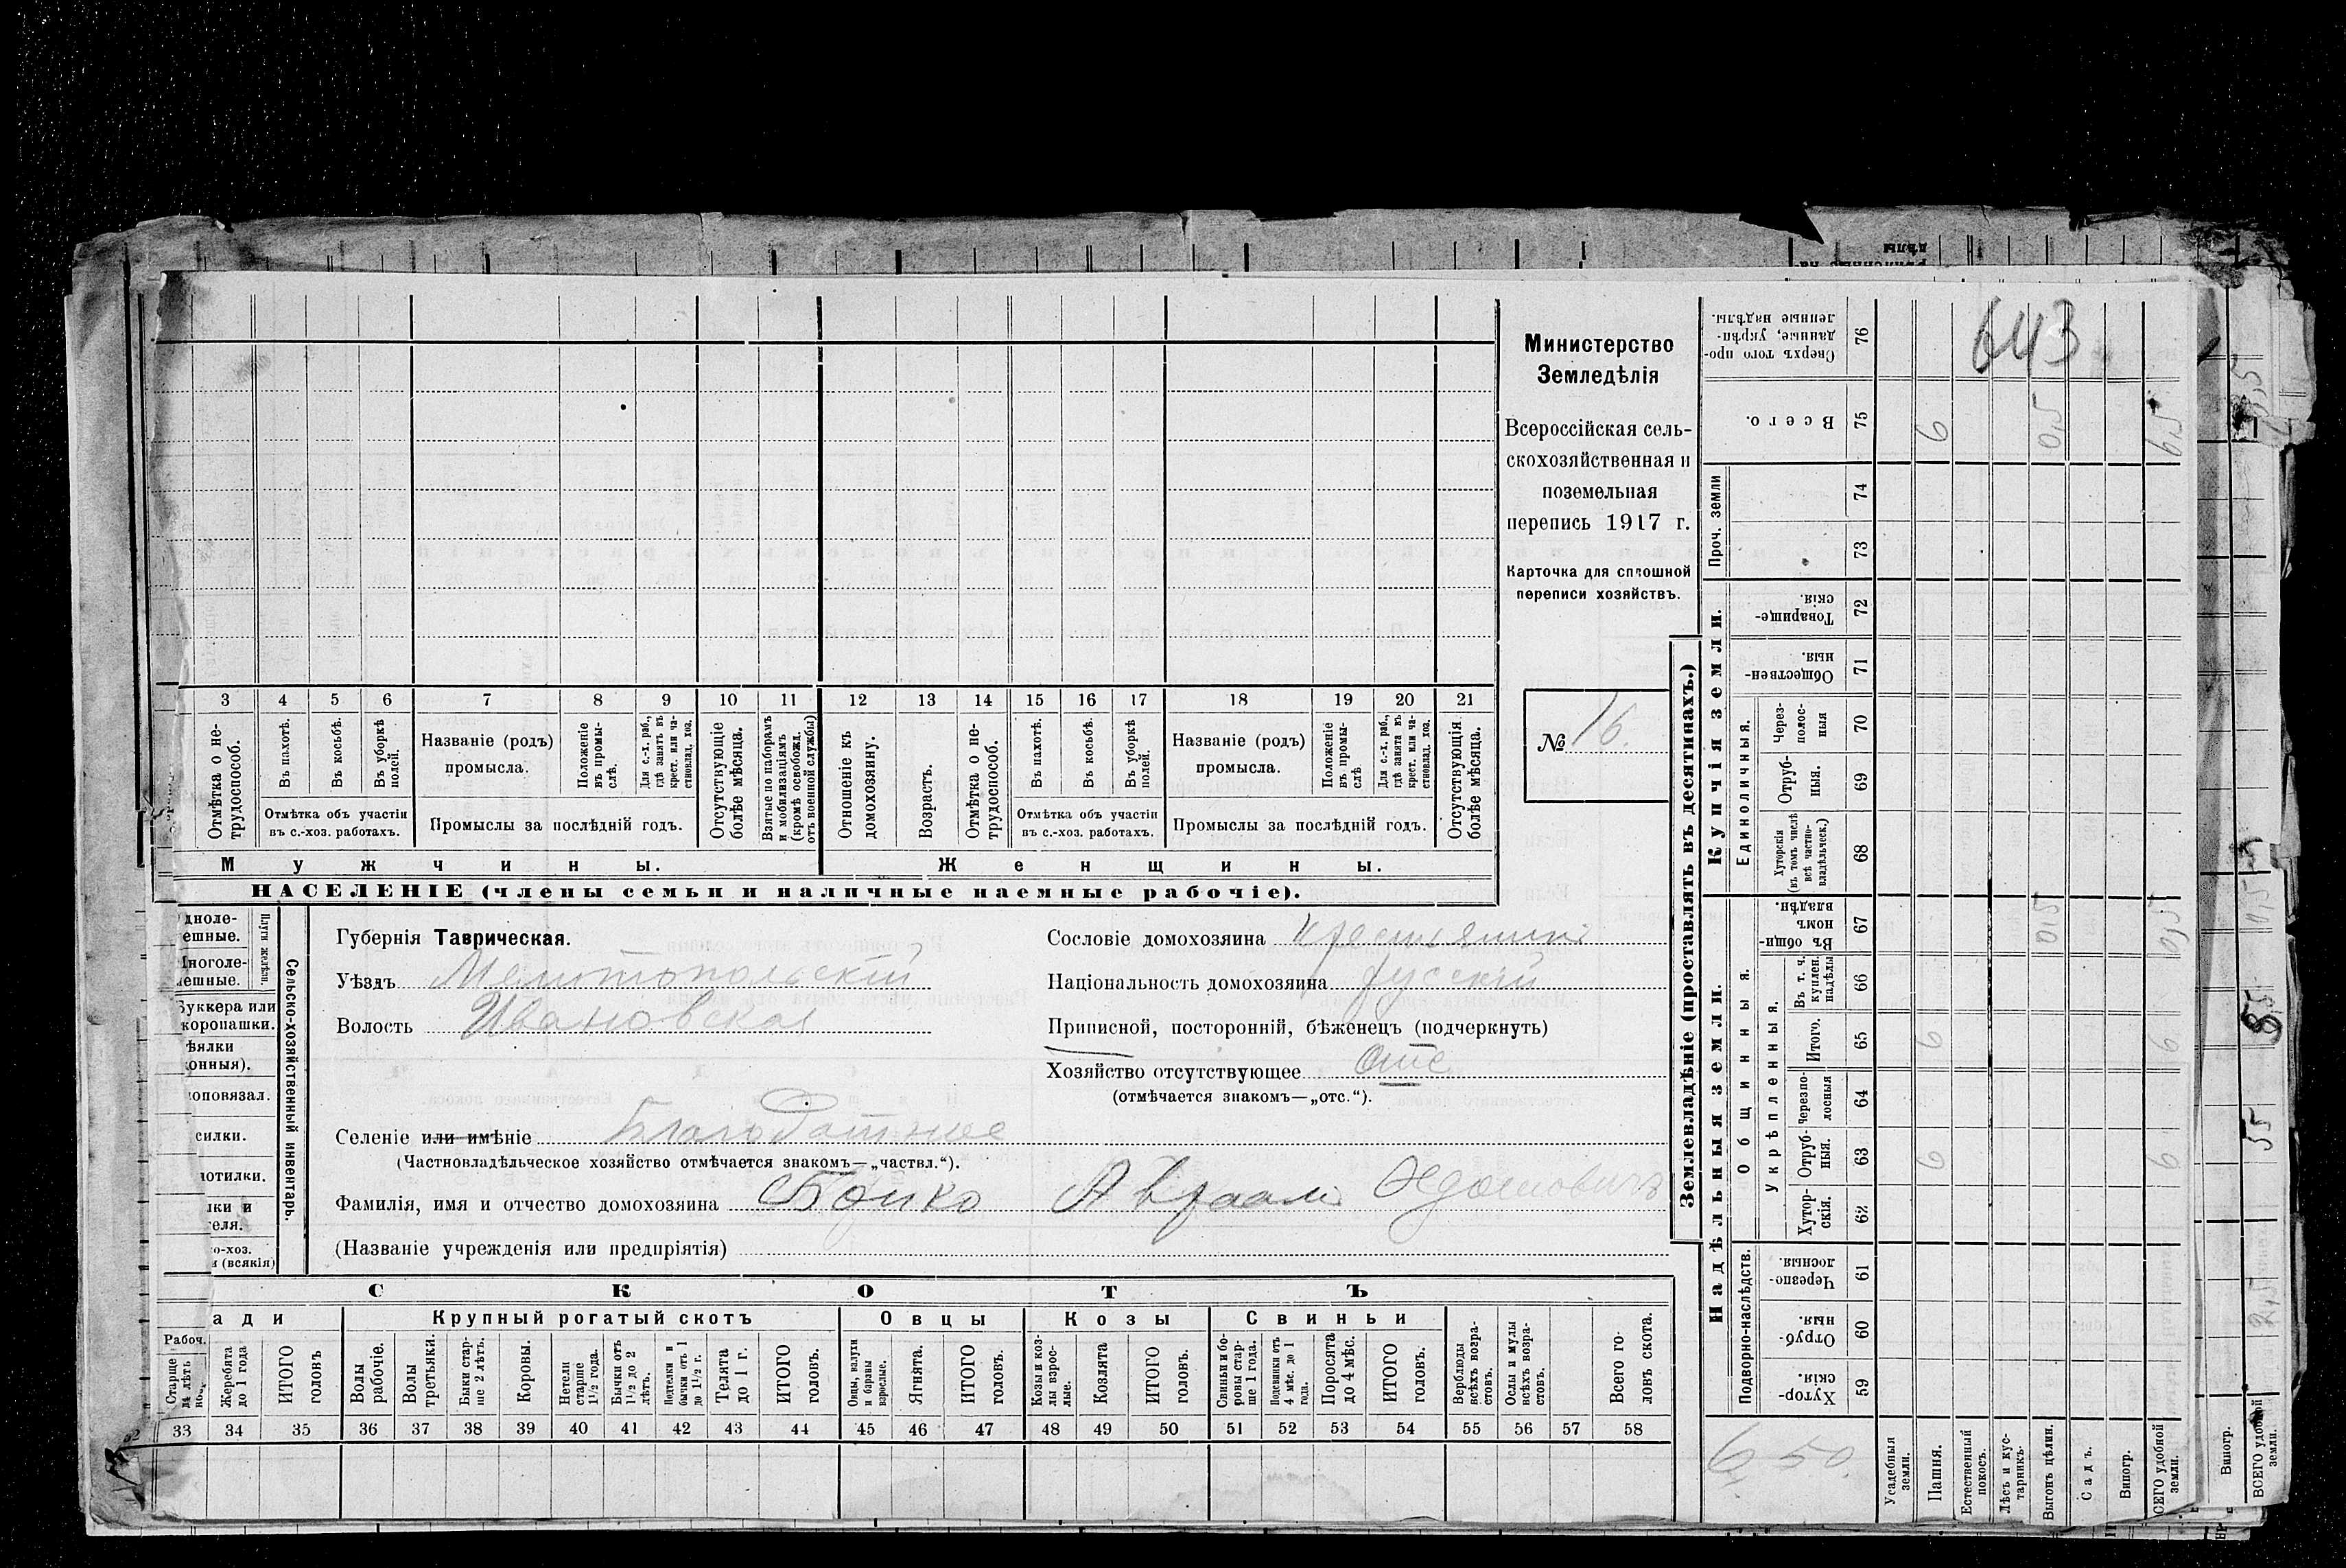 Министерство
Земледѣлія
Всероссійская сель-
скохозяйственная и
поземельная
перепись 1917 г.
Карточка для сплошной
переписи хозяйствъ.
№ 16.
643
3 4 5 6 7 8 9 10 11 12 13 14 15 16 17 18 19 20 21
Отмѣтка о не-
трудоспособ.
Въ пахотѣ.
Въ косьбѣ.
Въ уборкѣ
полей.
Отмѣтка объ участіи
въ с.-хоз. работахъ.
Названіе (родъ)
промысла.
Положеніе
въ промы-
слѣ.
Для с.-х. раб.,
гдѣ занятъ въ
крест. или ча-
стновлад. хоз.
Промыслы за послѣдній годъ.
Отсутствующіе
болѣе мѣсяца.
Взятые по наборамъ
и мобилизаціямъ
(кромѣ освобожд.
отъ военной службы)
Отношеніе къ
домохозяину.
Возрастъ.
Отмѣтка о не-
трудоспособ.
Въ пахотѣ.
Въ косьбѣ.
Въ уборкѣ
полей.
Отмѣтка объ участіи
въ с.-хоз. работахъ.
Названіе (родъ)
промысла.
Положеніе
въ промы-
слѣ
Для с.-х. раб.,
гдѣ занята въ
крест. или ча-
стновлад. хоз.
Промыслы за послѣдній годъ.
Отсутствующія
болѣе мѣсяца.
Мужчины.
Женщины.
НАСЕЛЕНІЕ (члены семьи и наличные наемные рабочіе).
Плуги желѣзн.
Сельско-хозяйственный инвентарь.
Губернія Таврическая.
Уѣздъ Мелитопольскій
Волость Ивановская
Сословіе домохозяина крестьянинъ
Національность домохозяина русскій
Приписной, посторонній, бѣженецъ (подчеркнуть)
Хозяйство отсутствующее отс
(отмѣчается знакомъ—„отс.“).
Селеніе или имѣніе Благодатное
(Частновладѣльческое хозяйство отмѣчается знакомъ—„частвл.“).
Фамилія, имя и отчество домохозяина Бойко Авраам
(Названіе учрежденія или предпріятія)
СКОТЪ
Крупный рогатый скотъ
Овцы
Козы
Свиньи
Рабоч.
Жеребята
до 1 года
ИТОГО
головъ
Волы
рабочіе.
Волы
третьяки.
Быки стар-
ше 2 лѣтъ.
Коровы.
Нетели
старше
1½ года.
Бычки отъ
1½ до 2
лѣтъ.
Подтелки и
бычки отъ 1
до 1½ г.
Телята
до 1 г.
ИТОГО
головъ.
Овцы, валухи
и бараны
взрослые.
Ягнята.
ИТОГО
головъ.
Козы и коз-
лы взрос-
лые.
Козлята
ИТОГО
головъ.
Свиньи и бо-
ровы стар-
ше 1 года.
Подсвинки отъ
4 мѣс. до 1
года.
Поросята
до 4 мѣс.
ИТОГО
головъ.
Верблюды
всѣхъ возра-
стовъ.
Ослы и мулы
всѣхъ возра-
стовъ.
Всего го-
ловъ скота.
33 34 35 36 37 38 39 40 41 42 43 44 45 46 47 48 49 50 51 52 53 54 55 56 57 58
Землевладѣніе (проставлять въ десятинахъ.)
Сверхъ того про-
данные, укрѣп-
ленные надѣлы.
76
Всего.
75 6 0,5 6,5
Проч. земли
74
73
Купчія земли.
Товарище-
скія.
72
Обществен-
ныя.
71
Единоличныя.
Через-
полос-
ныя
70
Отруб-
ныя.
69
Хуторскія
(въ томъ числѣ
всѣ частно-
владѣльческ.)
68
Надѣльныя земли.
Общинныя.
Въ общи-
номъ
владѣн.
67 0,5 0,5
Укрѣпленныя.
Въ т. ч.
куплен.
надѣлы
66
Итого.
65 6 6
Черезпо-
лосная
64
Отруб-
ныя.
63 6 6
Хутор-
скія.
62
Подворно-наслѣдств.
Черезпо-
лосныя.
61
Отруб-
ныя.
60
Хутор-
скія
59
650.
Усадебныя
земли.
Пашня.
Естественный
покосъ.
Лѣсъ и кус-
тарникъ.
Выгонъ цѣлин.
Садъ.
Виногр.
Виногр.
ВСЕГО удобной
земли.